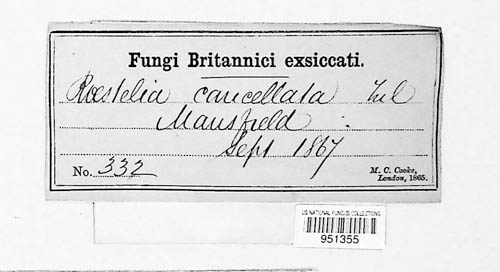 Fungi Britannici exsiccati.
Roestelia cancellata Tul
Mansfield
Sept 1867
No. 332
M. C. Cooke,
London, 1865.
US NATIONAL FUNGUS COLLECTIONS
951355